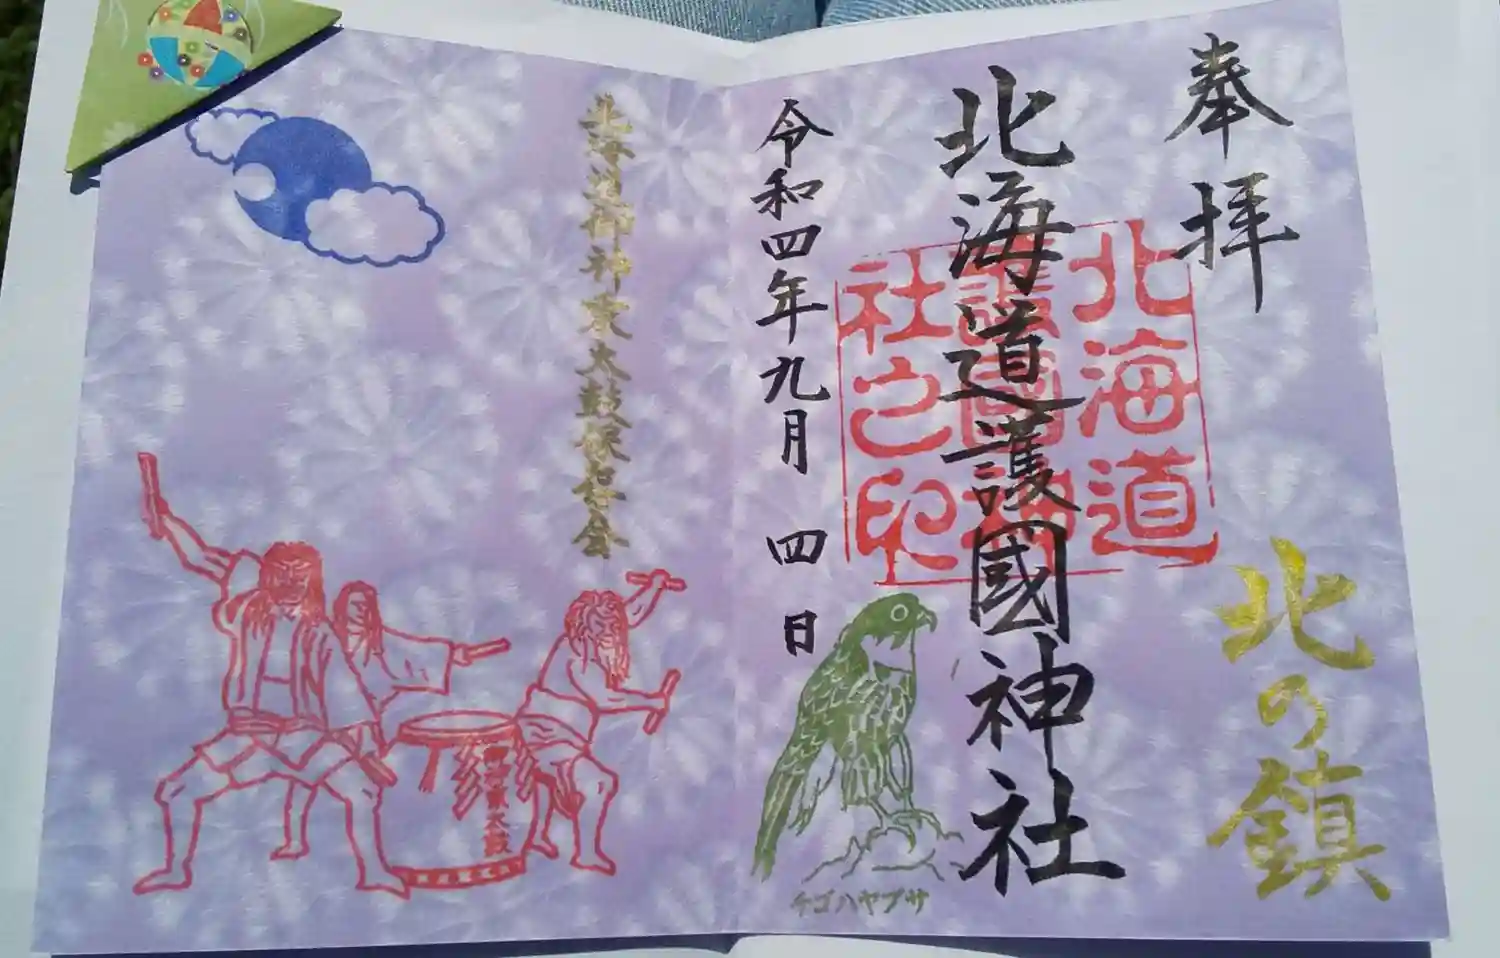 奉拝
北の鎮
北海道護國神社
北海道
護國神
社之印
令和四年九月 四日
チゴハヤブサ
北海道御神乗太鼓保存会
御神乗太鼓